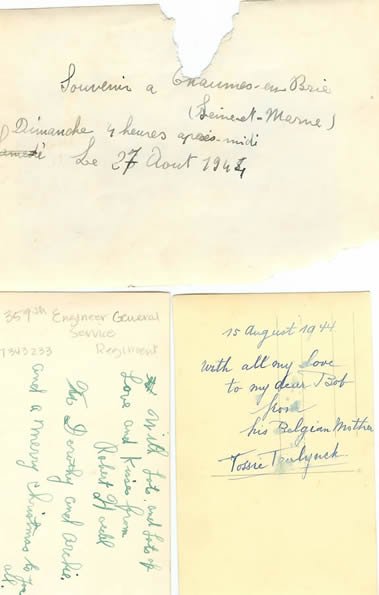 Souvenir a Chaumes-en Brie
(Seine-et-Marne)
Dimanche 4 heures après-midi
Samedi Le 27 Aout 1944
359th Engineer General
Service
T343233 Regiment
With Lots and Lots of
Love and Kisses from
Robert
To Dorothy and Archie
and a Merry Christmas to
all.
15 August 1944
With all my love
to my dear Bob
from
his Belgian Mother
Tossie